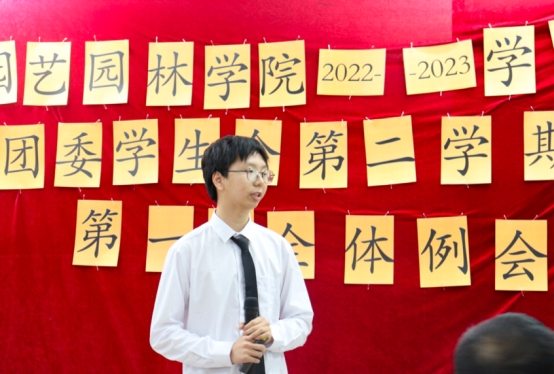 园艺园林学院2022--2023学
团委学生会第二学期
第一 全体例会